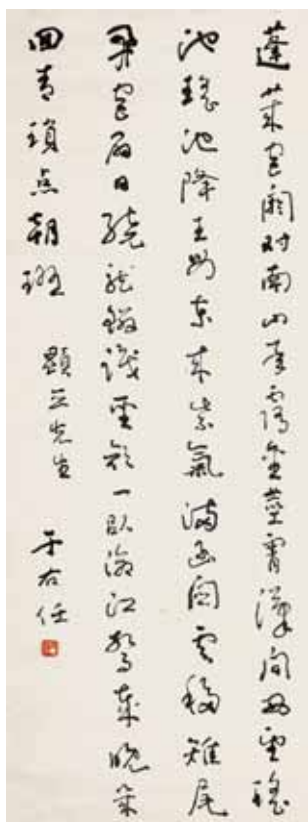 蓬萊宮闕对南山承露金莖霄漢间西望瑤
池瑤池降王母東来紫氣滿函関雲移雉尾
開宮扇日繞龍鱗識聖顏一臥滄江驚歲晚幾
回青瑣点朝班 顯立先生 于右任